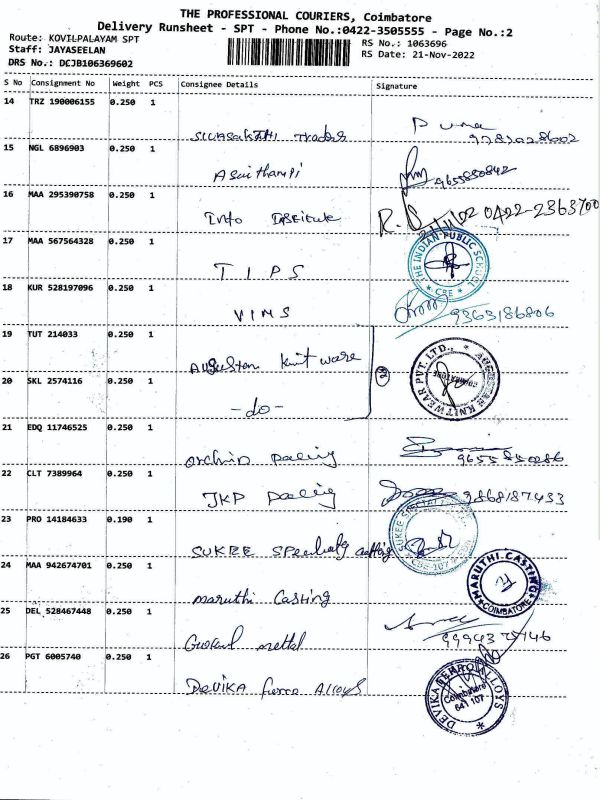 THE PROFESSIONAL COURIERS, Coimbatore
Delivery Runsheet - SPT - Phone No.:0422-3505555 - Page No.:2
Route: KOVILPALAYAM SPT
RS No.: 1063696
Staff: JAYASEELAN
RS Date: 21-Nov-2022
DRS No.: DCJB106369602
S No Consignment No Weight PCS Consignee Details Signature
14 TRZ 190006155 0.250 1
15 NGL 6896903 0.250 1
9655850842
16 MAA 295390758 0.250 1
Info Institute R.S 0422-2363700
17 MAA 567564328 0.250 1
TIPS THE INDIAN PUBLIC SCHOOL * CBE *
18 KUR 528197096 0.250 1
VIMS 9363186806
19 TUT 214033 0.250 1
Auguston Knit ware
20 SKL 2574116 0.250 1
-do- KNIT WEAR PVT. LTD.,
21 EDQ 11746525 0.250 1
9655850286
22 CLT 7389964 0.250 1
JKP 9868187433
23 PRO 14184633 0.190 1
SUKEE Speciality
24 MAA 942674701 0.250 1
Maruthi Casting MARUTHI CASTING COIMBATORE
25 DEL 528467448 0.250 1
26 PGT 6005740 0.250 1
DEVIKA Ferro Alloys DEVIKA FERRO ALLOYS Coimbatore 641 107